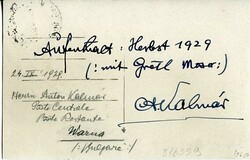 Aufenthalt: Herbst 1929
(: mit Gretl Moser :)
24. IX. 1929.
A Kalmár
Herrn Anton Kalmár
Poste Centrale
Poste Restante
Warna
/: Bulgarie :/